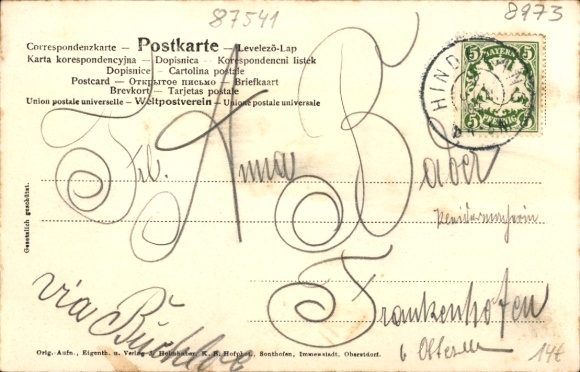 87541
8973
Correspondenzkarte – Postkarte – Levelező-Lap
Karta korespondencyjna – Dopisnica – Korespondencni listek
Dopisnice – Cartolina postale
Postcard – Открытое письмо – Briefkaart
Brevkort – Tarjetas postale
Union postale universelle – Weltpostverein – Unione postale universale
BAYERN
5 5
PFENNIG
HIND
Frl. Anna Bauer
Frankenhofen
via Buchloe
Gesetzlich geschützt.
Orig.-Aufn., Eigenth. u. Verlag J. Heimhuber, K. B. Hofphot., Sonthofen, Immenstadt, Oberstdorf.
14t